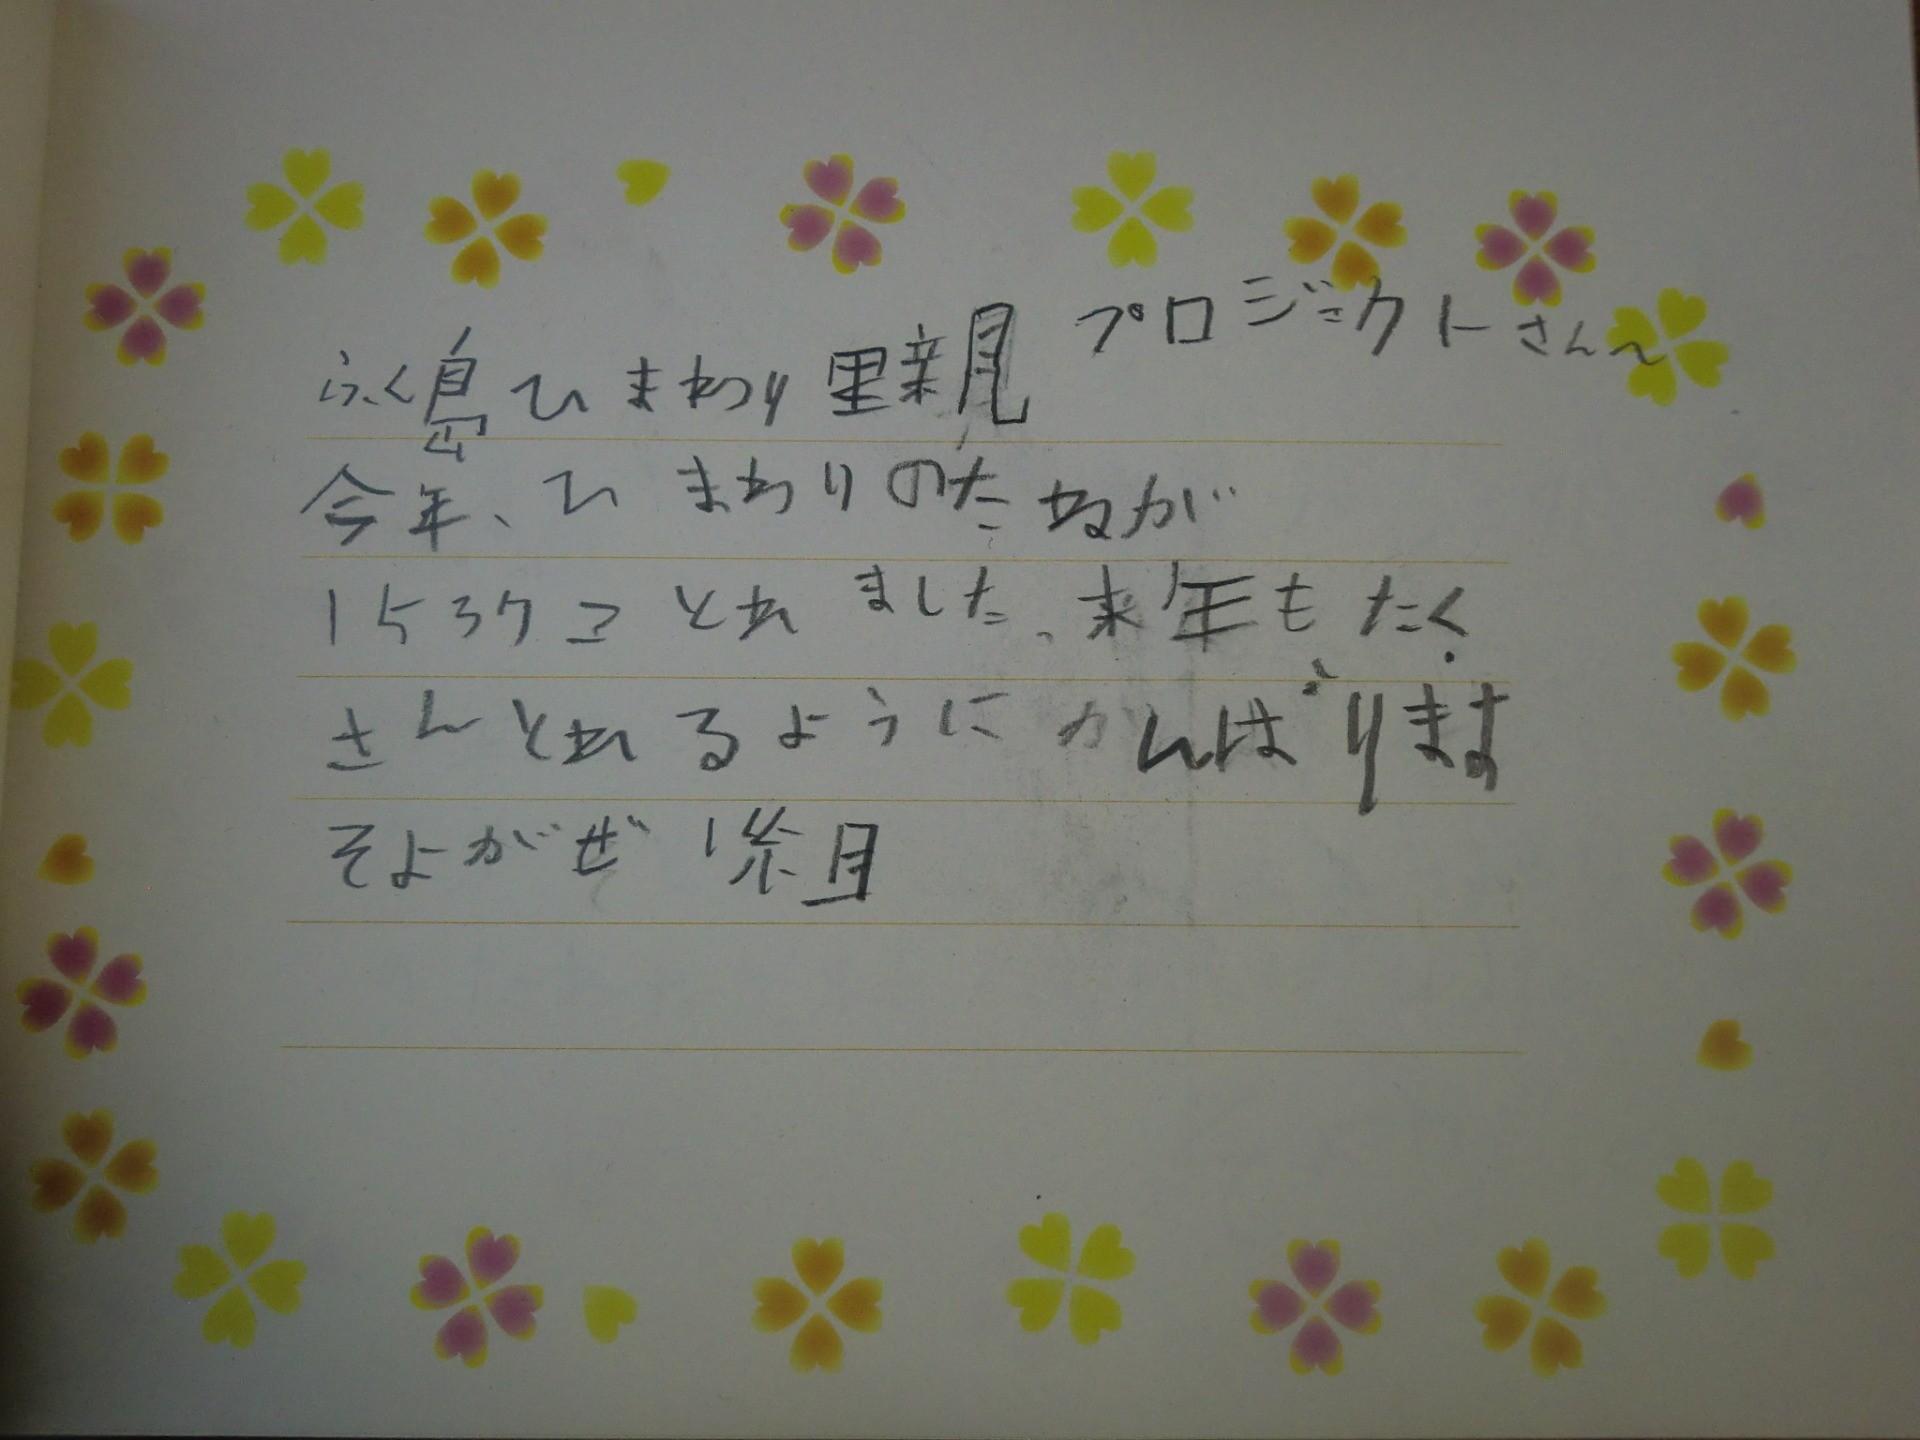 ふく島ひまわり里親プロジェクトさんへ
今年、ひまわりのたねが
1537コとれました、来年もたく
さんとれるようにがんばります
そよがぜ1組